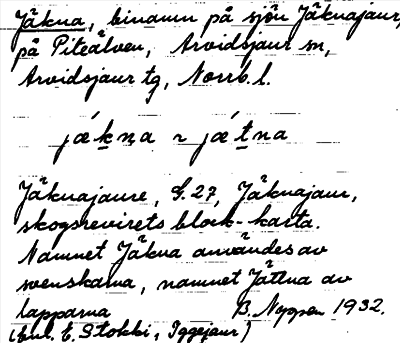 Jäkna, binamn på sjön Jäknajaur,
på Piteälven, Arvidsjaur sn,
Arvidsjaur tg, Norrb. l.
jǽḵṇa ~ jǽṯna
Jäknajaure, G. 27, Jäknajaur,
skogsrevirets block-karta.
Namnet Jäkna användes av
svenskarna, namnet Jättna av
lapparna B. Nyppen 1932.
(enl. E. Stokki, Iggejaur)